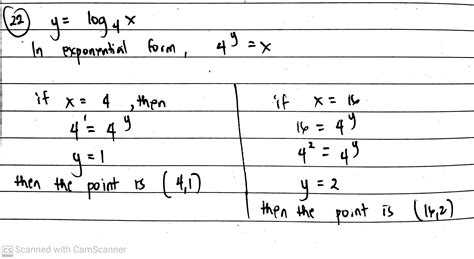 22 y = log₄ x
In exponential form, 4^y = x
if x = 4, then
4^1 = 4^y
y = 1
then the point is (4,1)
if x = 16
16 = 4^y
4^2 = 4^y
y = 2
then the point is (16,2)
CS Scanned with CamScanner